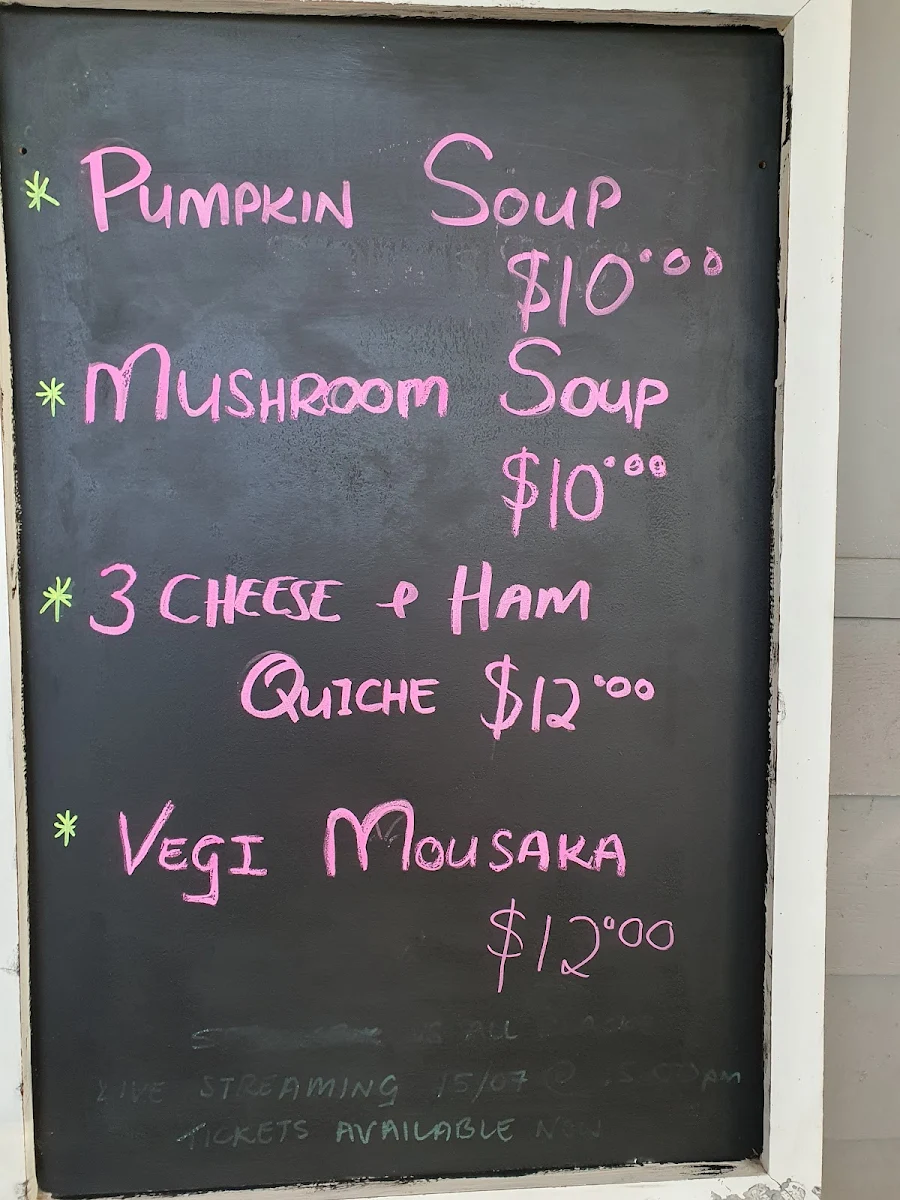 * PUMPKIN SOUP
$10.00
* MUSHROOM SOUP
$10.00
* 3 CHEESE & HAM
QUICHE $12.00
* VEGI MOUSAKA
$12.00
ALL
LIVE STREAMING 15/07 @
TICKETS AVAILABLE NOW